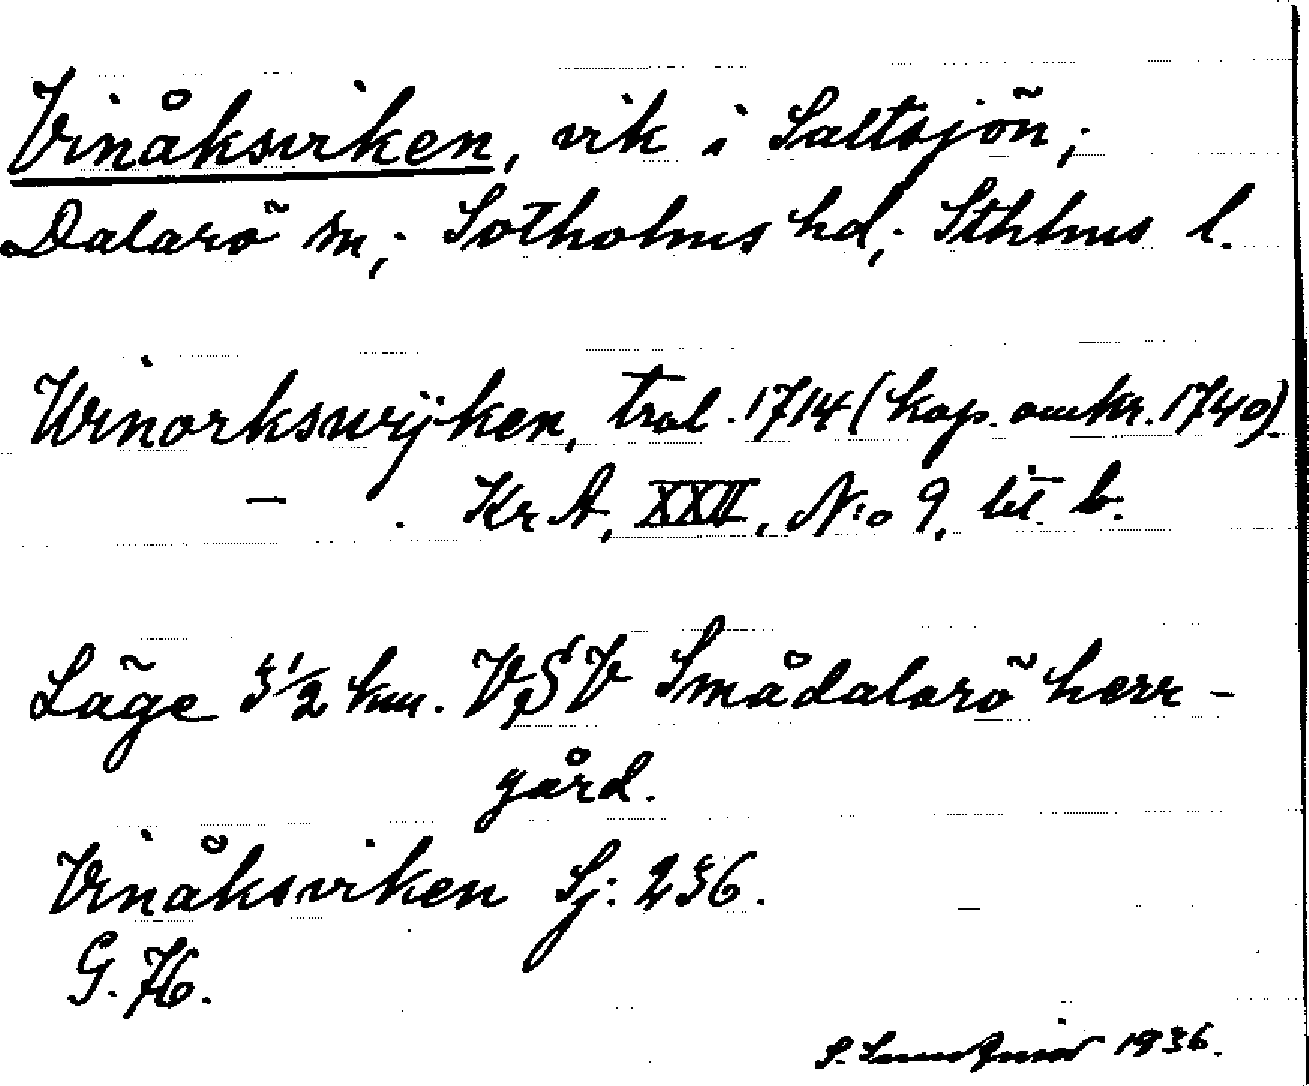 Vinåksviken, vik i Saltsjön;
Dalarö sn; Sotholms hd; Sthlms l.
Winorkswijken, tral. 1714 (kop. omkr. 1740).
— . Kr A, XXII, N:o 9, lit. b.
Läge 3 1/2 km. V,SV Smådalarö herr-
gård.
Vinåksviken Sj: 236.
G. 76.
S. 1936.